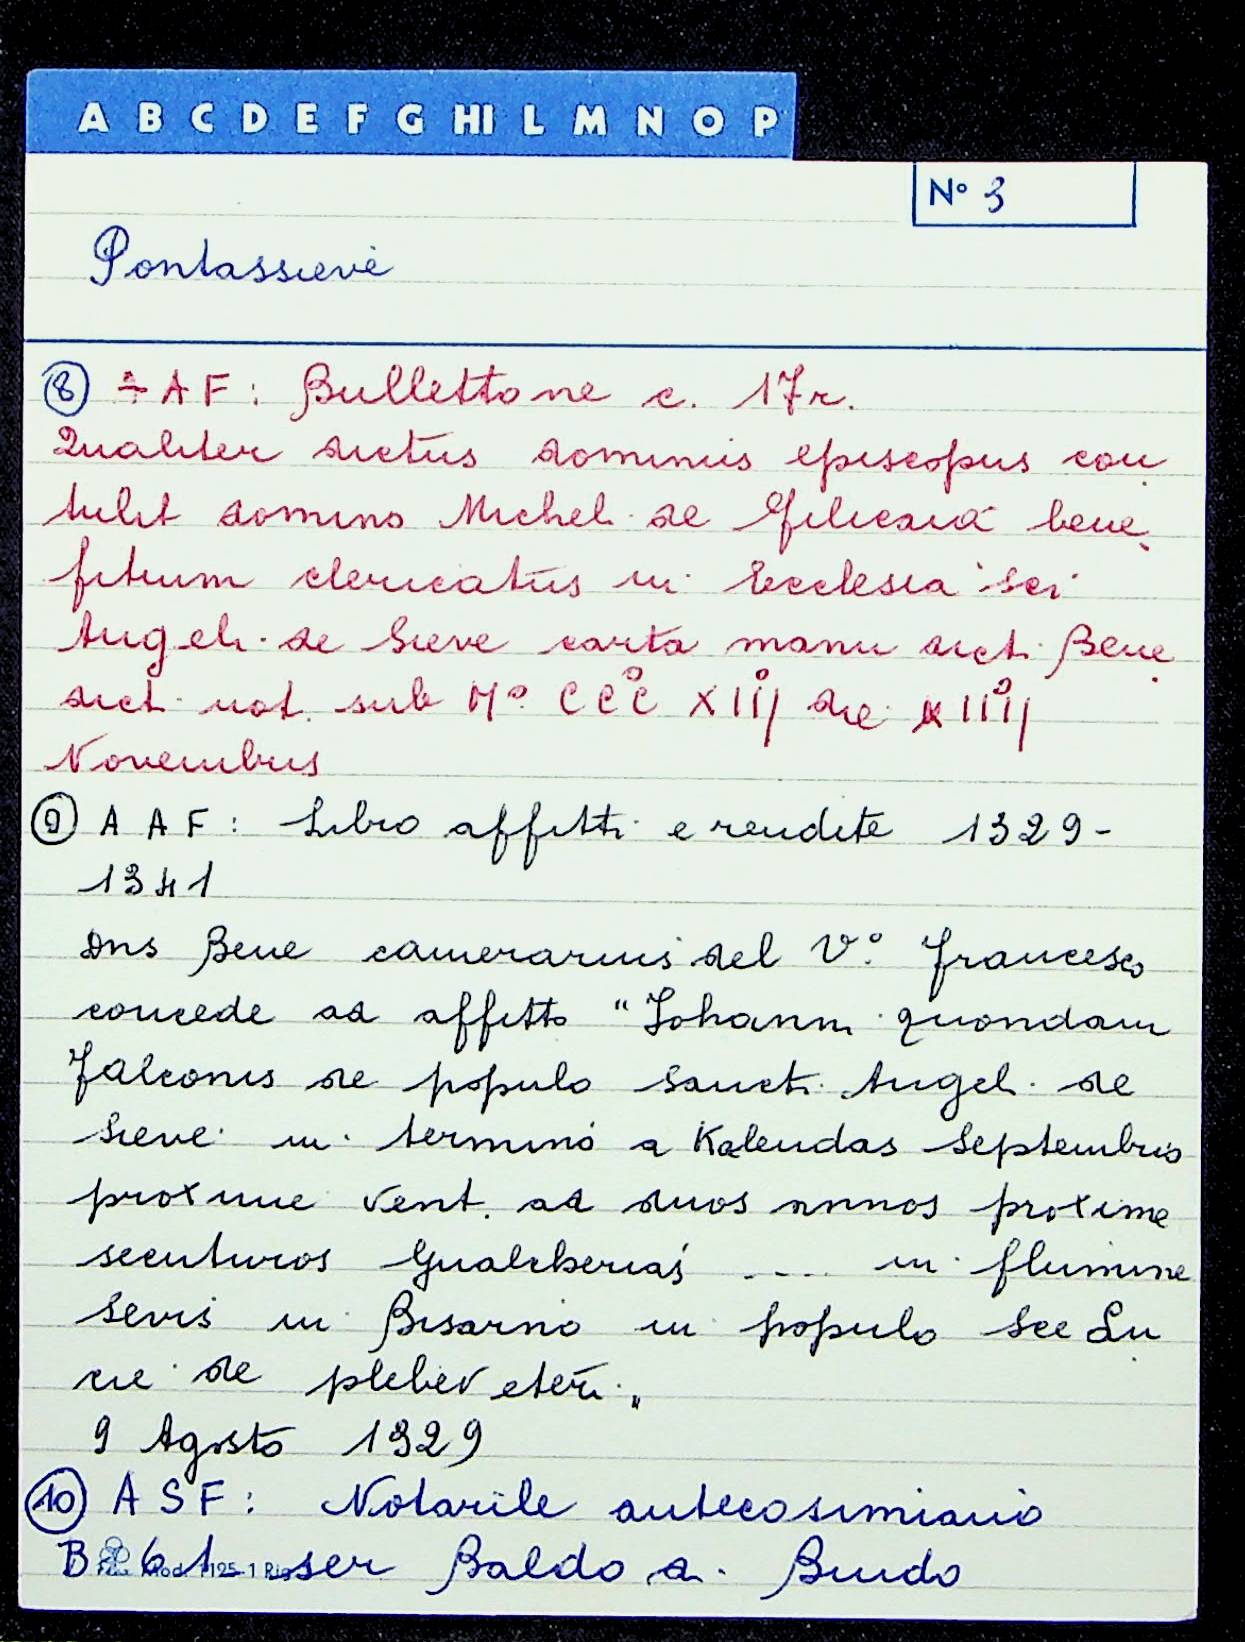 A B C D E F G HI L M N O P
N° 3
Pontassieve
8 A A F : Bullettone c. 17r.
Qualiter dictus dominus episcopus con
tulit domino Michel de Filicaia bene
fitium clericatus in Ecclesia Sci
Angeli de Sieve carta manu dicti Bene
dicti not. sub M° CCC XIIj die XIIIj
Novembris
9 A A F : Libro affitti e rendite 1329-
1341
Dns Bene camerarius del V.° Francesco
concede ad affitto "Johanni quondam
Falconis de populo Sancti Angeli de
Sieve in termino a Kalendas Septembris
proxime vent. ad duos annos proxime
secuturos Gualcherias .... in flumine
Sevis in Bisarno in populo See Lu
cie de plebe veteri"
9 Agosto 1329
10 A S F : Notarile antecosimiano
B 61 ser Baldo di Bindo